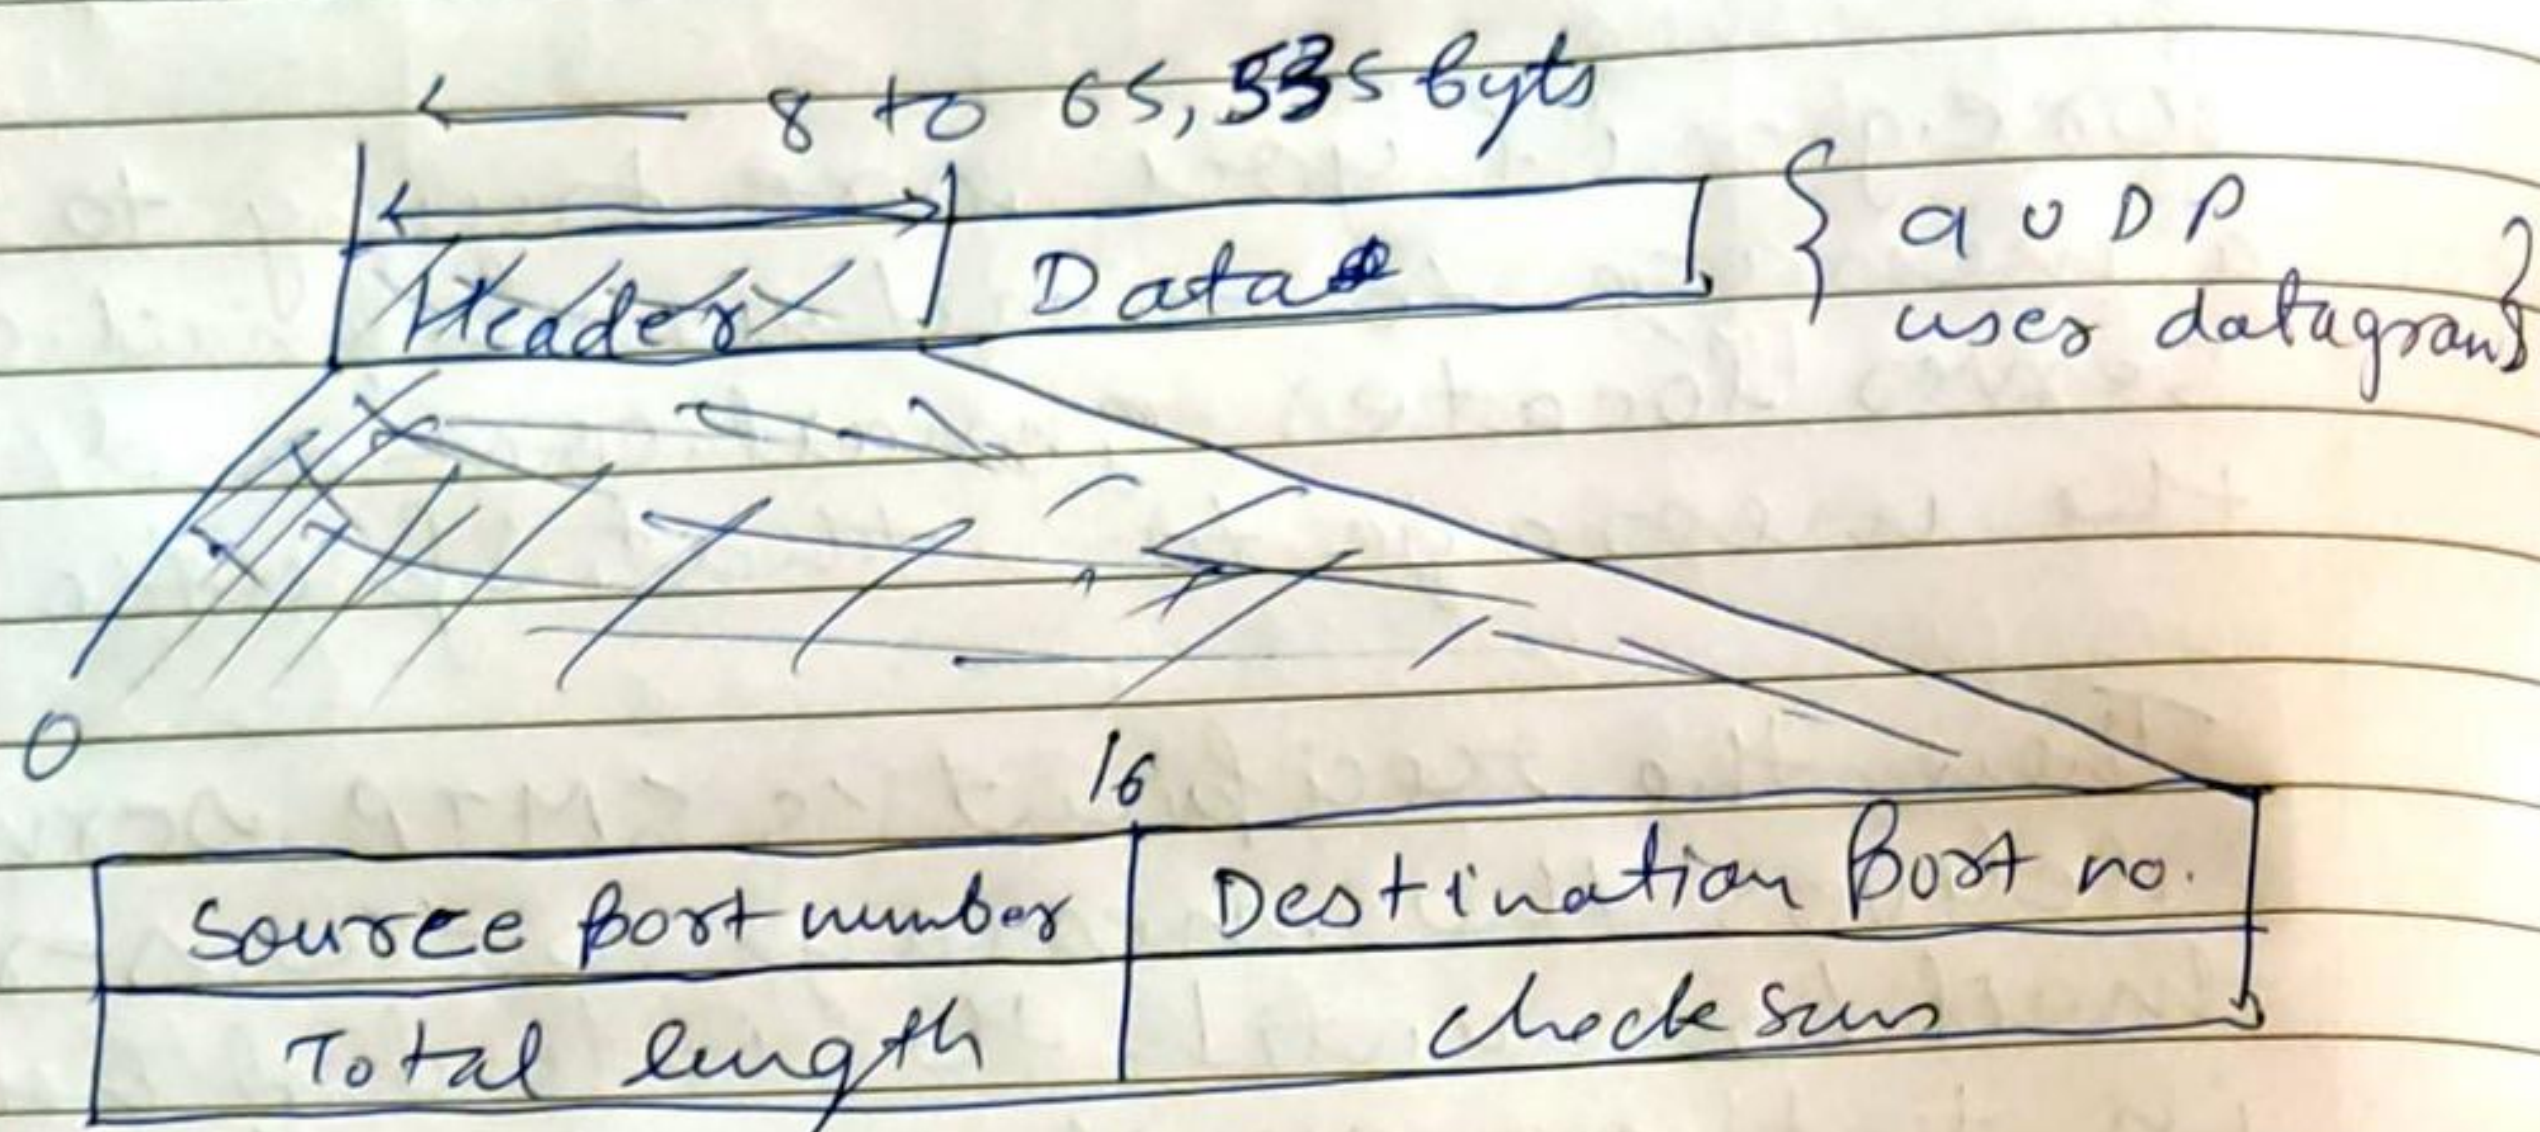 8 to 65,535 byts
Header Data
{ a UDP
user datagram}
0
16
Source Port number Destination Port no.
Total length checksum